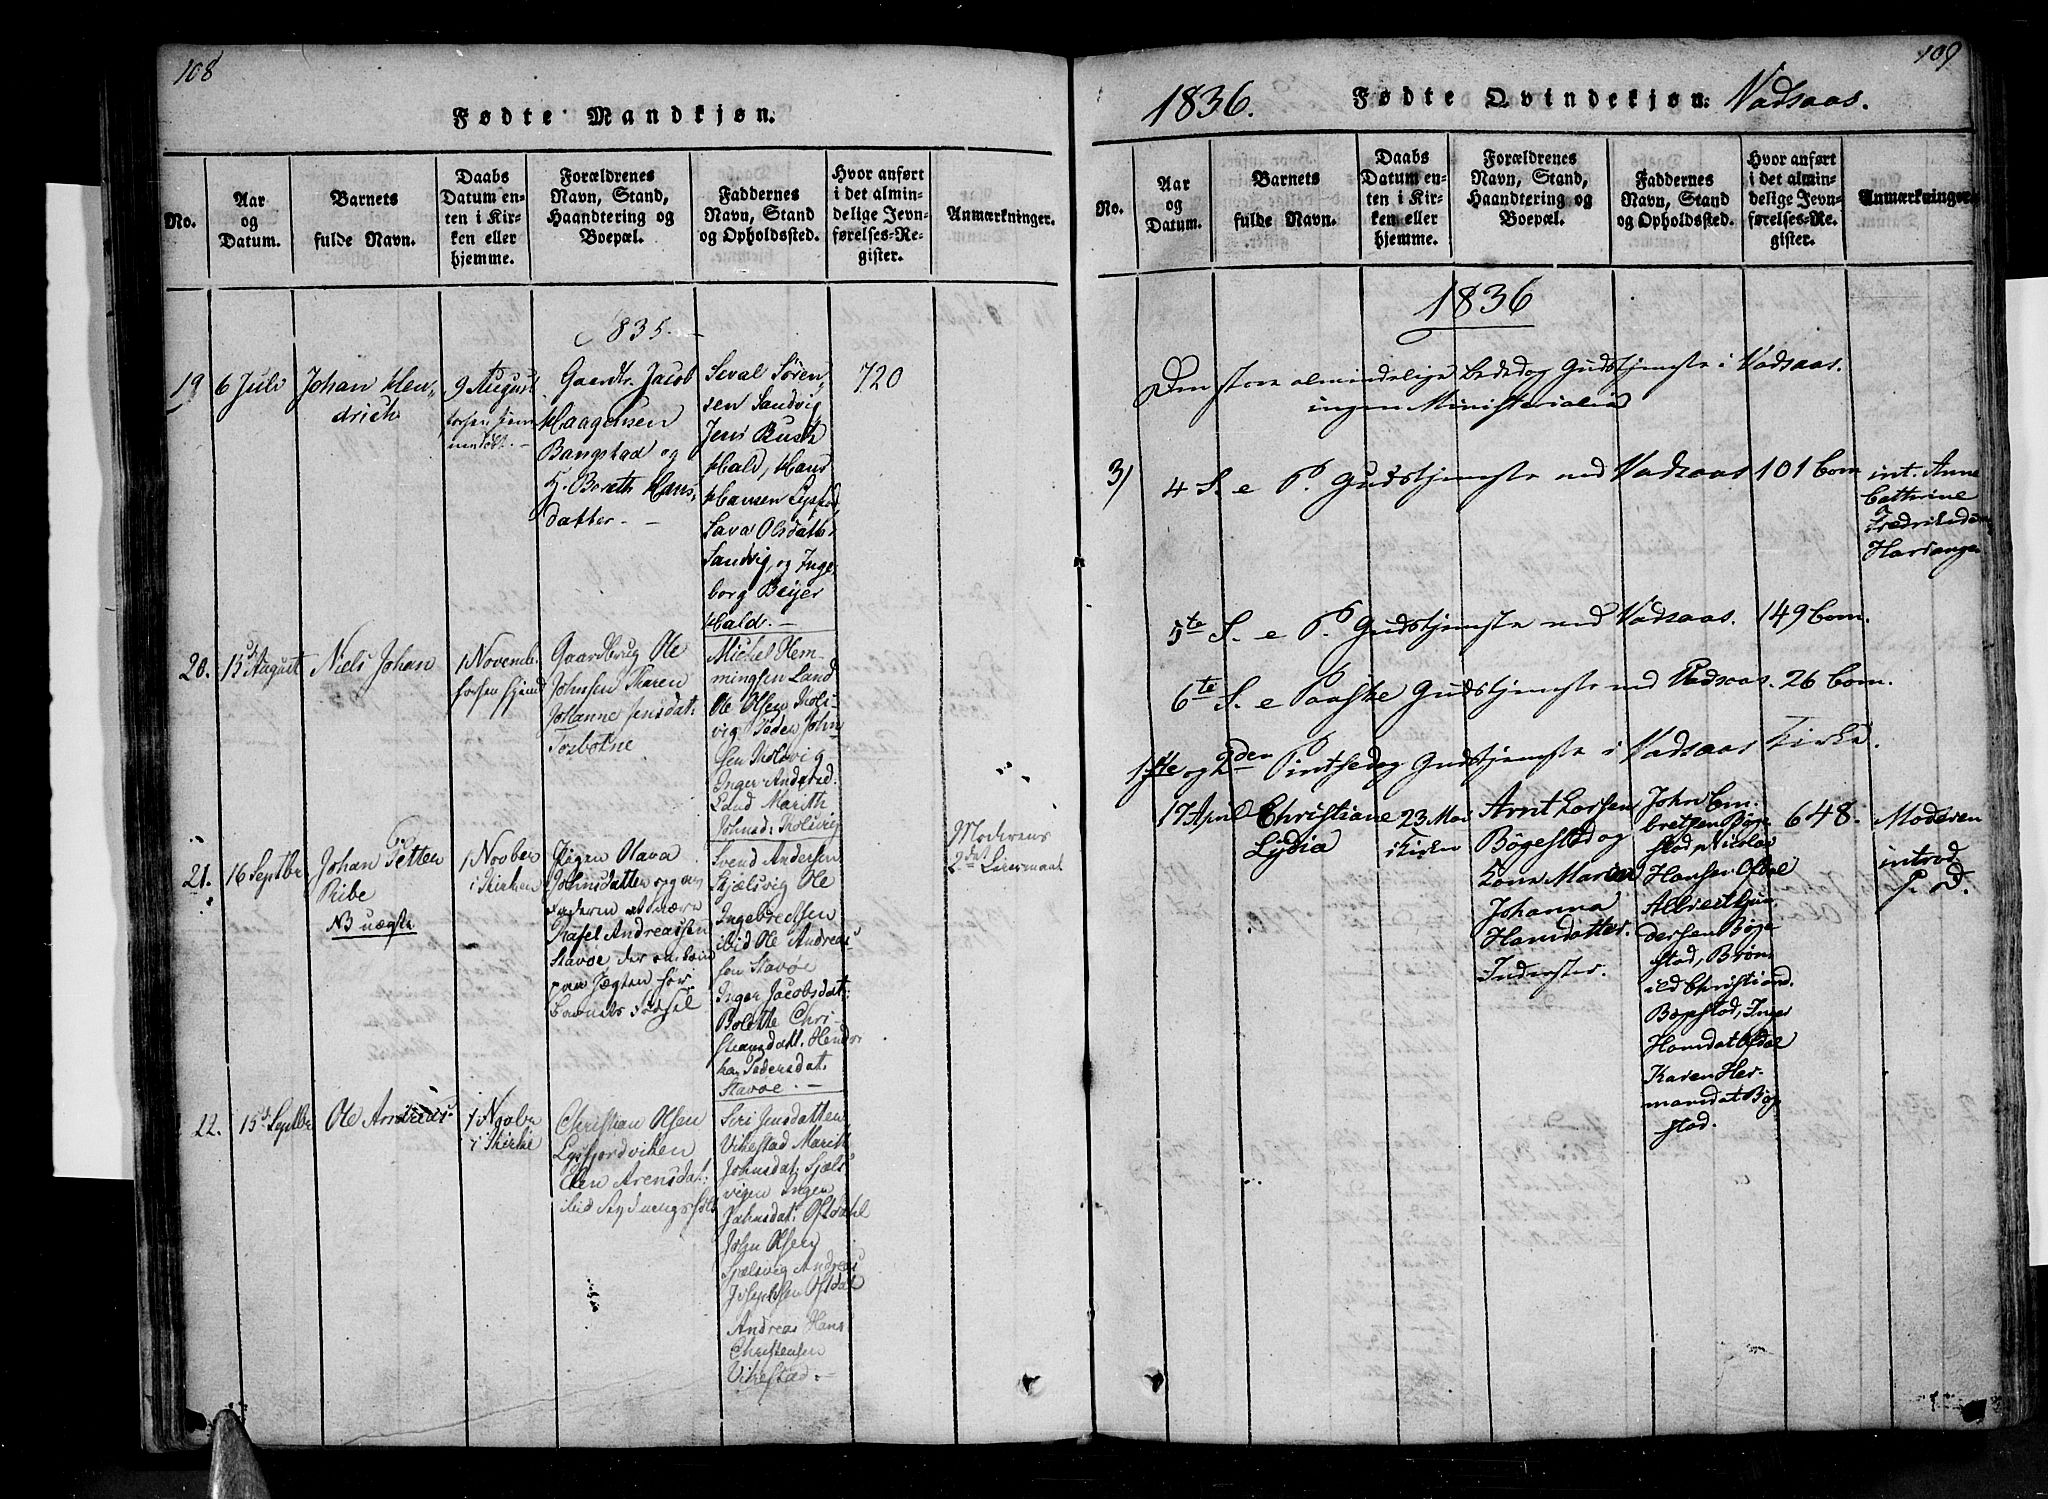 108
Fødte Mandkjøn.
No.
Aar
og
Datum.
Barnets
fulde Navn.
Daabs
Datum en-
ten i Kir-
ken eller
hjemme.
Forældrenes
Navn, Stand,
Haandtering og
Boepæl.
Faddernes
Navn, Stand
og Opholdssted.
Hvor anført
i det almin-
delige Jevn-
førelses-Re-
gister.
Anmærkninger.
1835.
19
6 Juli
Johan Hen-
drich
9 August
Gaardtr. Jacob
Haagensen
Bangstad og
H. Bereth Hans-
datter.
Sival Søren-
sen Sandvig
Jens Busch
Hald, Hans
Hansen
Sava Olsdatter
Sandvig, og Inge-
borg Beijer
Hald.
720
20.
15 August
Niels Johan
1 Novemb.
Gaardbrug Ole
Johnsen Karen
Johanne Jensdat:
Forbotne
Michel Hem-
mingsen Land
Ole Olsen
vig Peder John
sen
Inger Andersd.
Land Marith
Johnsd:
21.
16 Septbr
Johan Petter
Ribe
NB uægte
1 Novbr
i Kirken
Pigen Olava
Johnsdatter
faderen at være
Andreassen
Stavøe, der
paa Jægten før
Barnets Fødsel
Svend Andersen
Sjælsvig Ole
Ingebredtsen
ibid Ole Andreas
sen Stavøe
Inger Jacobsdat:
Bolette Chri-
stiansdatt.
Pedersdat.
Stavøe.
Moderens
2det Leiermaal
22.
15 Septbr
Ole Andreas
1 Novbr
i Kirke
Christian Olsen
Lysfjordviken
Elen Arensdat:
ibid
Siri Jensdatter
Vikestad Marith
Johnsdat: Sjæls
vigen Inger
Johnsdat: Ofstdahl
John Olsen
Sjælsvig Andreas
Josephsen Ofstdal
Andreas Hans
Christensen
Vikestad.
109
1836.
Fødte Qvindekjøn.
Vadsaas.
No.
Aar
og
Datum.
Barnets
fulde Navn.
Daabs
Datum en-
ten i Kir-
ken eller
hjemme.
Forældrenes
Navn, Stand,
Haandtering og
Boepæl.
Faddernes
Navn, Stand
og Opholdssted.
Hvor anført
i det almin-
delige Jevn-
førelses-Re-
gister.
Anmærkninger.
1836
Den store almindelige Bededag Gudstjenste i Vadsaas.
ingen Ministerialia
3)
4 S. e P. Gudstjenste ved Vadsaas 101 Com
int. Anne
Cathrine
Fredriksd
5te S. e P. Gudstjenste ved Vadsaas. 149 Com.
6te S. e Paaske Gudstjenste ved Vadsaas. 26 Com.
1ste og 2den Pintsedag Gudstjenste i Vadsaas Kirke.
17 April
Christiane
Lydia
23 Mai
i Kirken
Arnt Larsen
Bøgestad og
Kone Maren
Johanna
Hansdatter.
Inderster.
John Em-
bretsen Bøge-
stad, Nicolai
Hansen Ofdal
Albert Gun-
dersen Bøge-
stad, Brøn-
ild Christiand.
Bøgstad, Inger
Hansdat Ofdal
Karen Her-
mansdat Bøg-
stad.
648.
Moderen
introd
P. D.